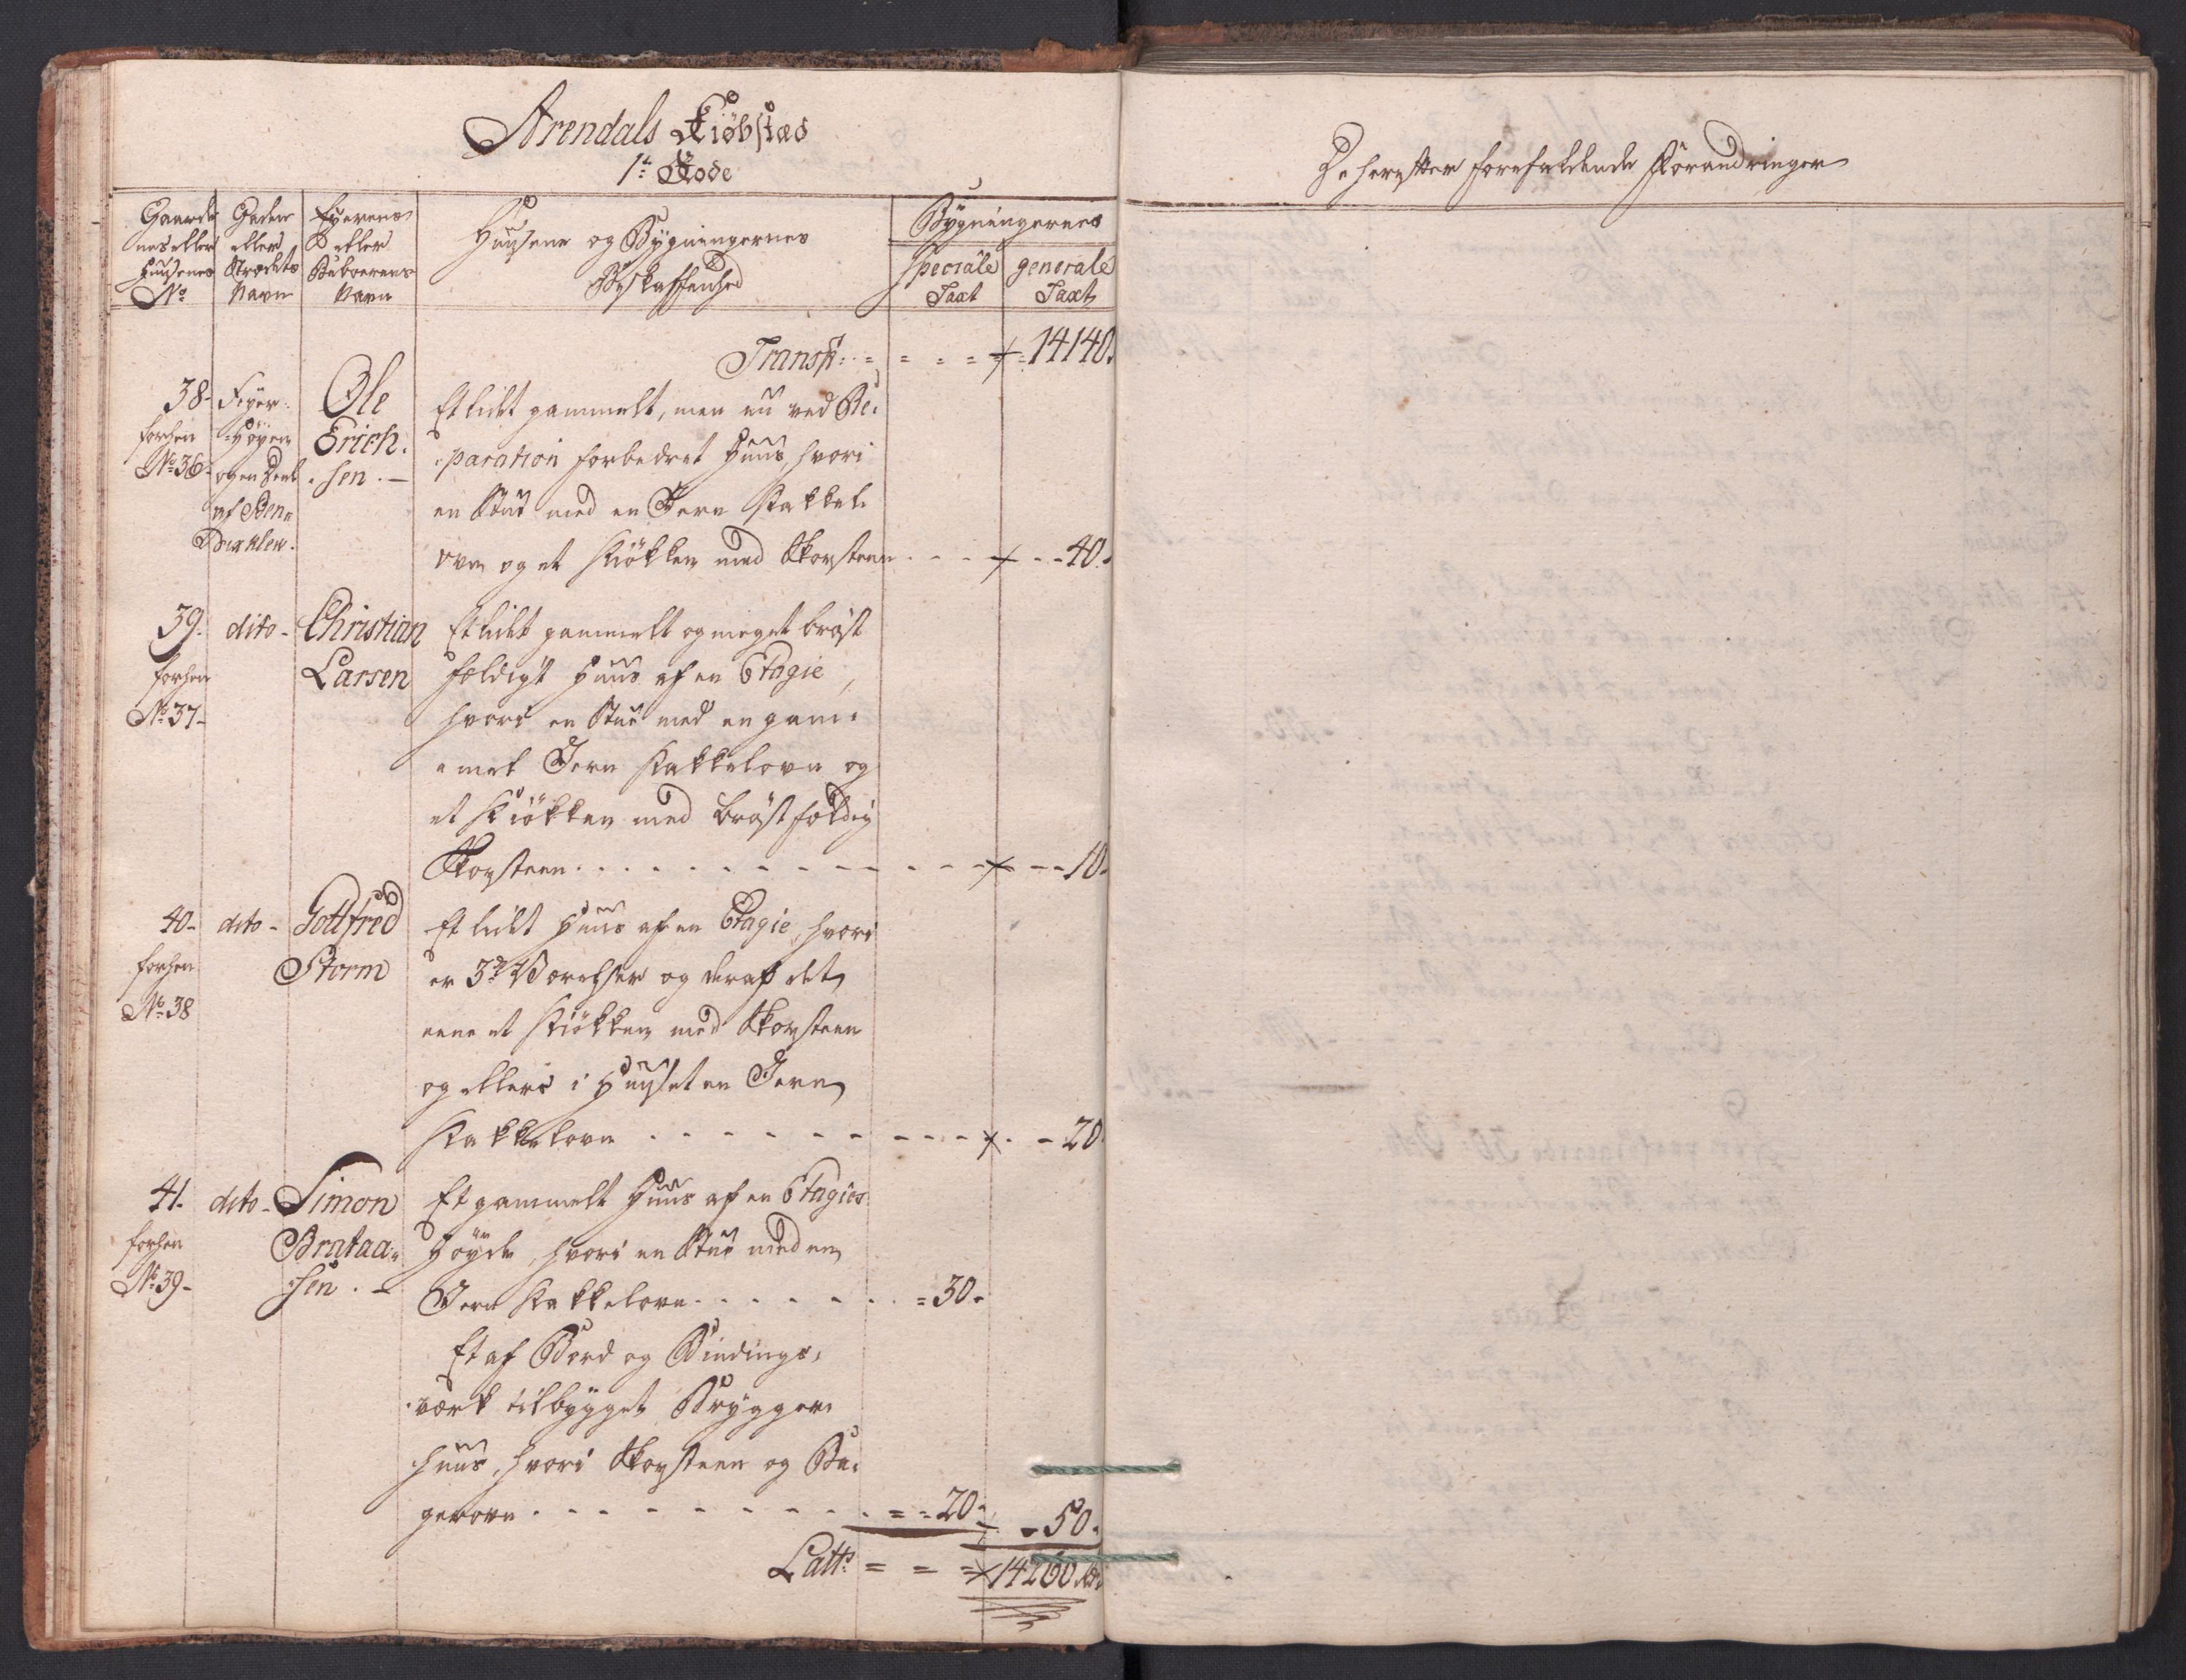 Arendals Kiöbstæd
1te Rode
Gaarde
nes eller
Huusenes
No
Gaden
eller
Strædets
Navn
Eyerens
eller
Beboerens
Navn
Huusene og Bygningernes
Beskaffenhed
Bygningernes
speciale
Taxt
generale
Taxt
Transp: 14140.
38. forhen No 36.
Feyer-
Høyen
og en Deel
af
Ole
Erich-
sen.
Et lidt gammelt, men nu ved Re-
paration forbedret Huus, hvori
en Stue med en Jern Kakkel-
ovn og et Kiökken med Skorsteen 40.
39. forhen No 37.
dito
Christian
Larsen
Et lidt gammelt og meget bröst
fældigt Huus af en Etagie,
hvori en Stue med en gam-
mel Jern Kakkelovn og
et Kiökken med bröstfældig
Skorsteen 10.
40. forhen No 38
dito
Gottfred
Storm
Et lidt Huus af en Etagie, hvori
er 3de Værelser og deraf det
eene et Kiökken med Skorsteen
og ellers i Huuset en Jern
Kakkelovn 20.
41. forhen No 39.
dito
Simon
Brataa-
sen.
Et gammelt Huus af en Etagies
Høyde, hvori en Stue med en
Jern Kakkelovn 30.
Et af Bord og Bindings-
værk tilbygget Brygger-
huus, hvori Skorsteen og Ba-
gerovn 20. 50.
Latts 14260 Rd
De herefter forefaldende Forandringer